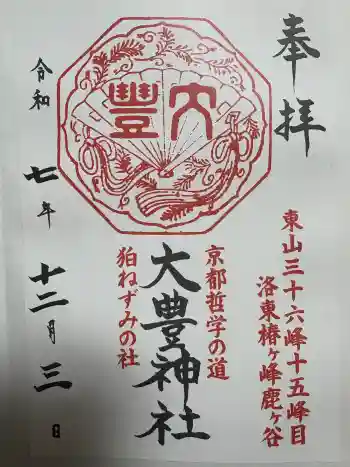 奉拝
東山三十六峰十五峰目
洛東椿ヶ峰鹿ヶ谷
大豊
京都哲学の道
大豊神社
狛ねずみの社
令和七年十二月三日